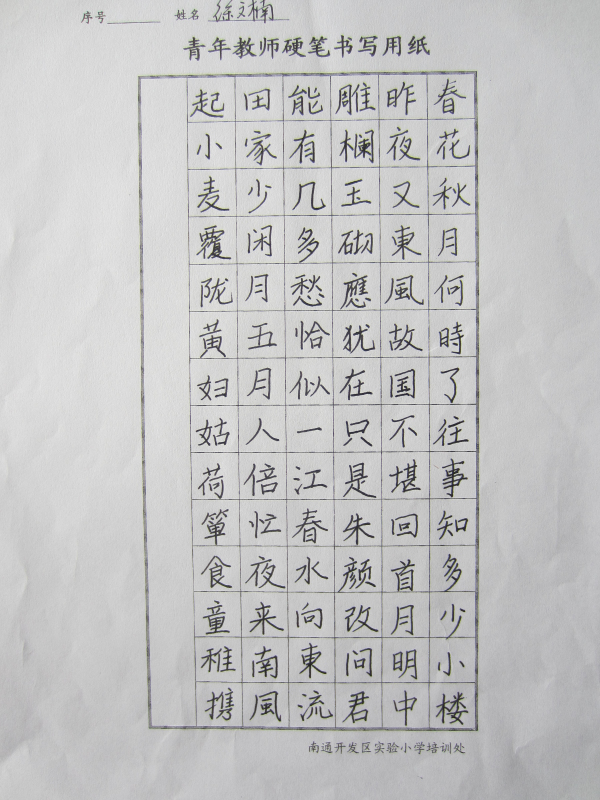 序号 姓名 徐文楠
青年教师硬笔书写用纸
春花秋月何時了往事知多少小楼
昨夜又東風故国不堪回首月明中
雕欄玉砌應犹在只是朱颜改问君
能有几多愁恰似一江春水向東流
田家少闲月五月人倍忙夜来南風
起小麦覆陇黄妇姑荷箪食童稚携
南通开发区实验小学培训处